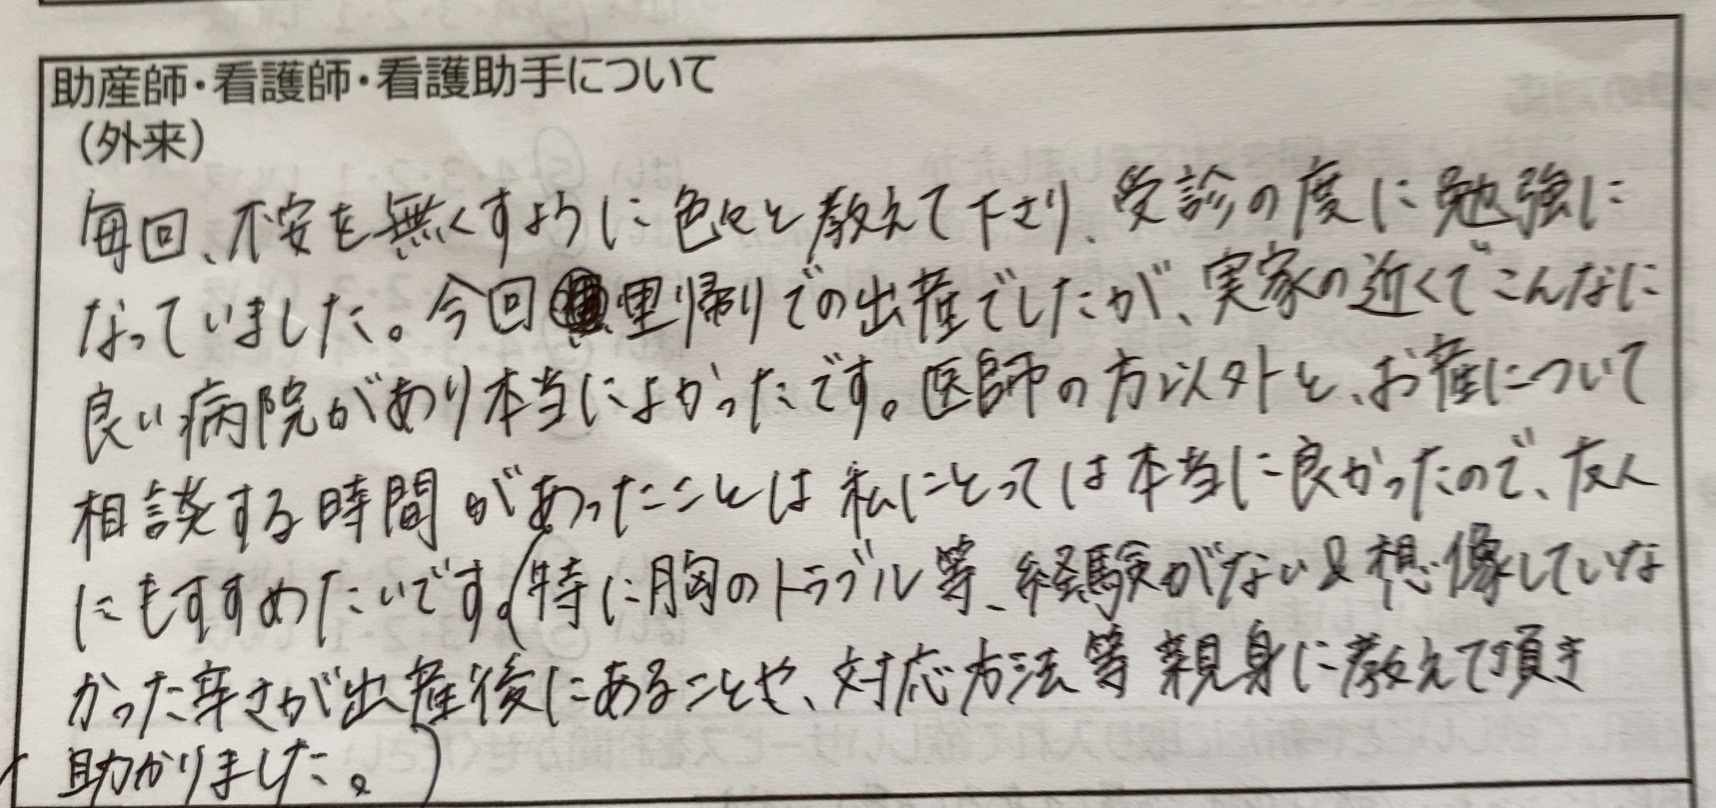 助産師・看護師・看護助手について
(外来)
毎回、不安を無くすように色々と教えて下さり、受診の度に勉強に
なっていました。今回里帰りでの出産でしたが、実家の近くでこんなに
良い病院があり本当によかったです。医師の方以外と、お産について
相談する時間があったことは私にとっては本当に良かったので、友人
にもすすめたいです。(特に胸のトラブル等、経験がない&想像していな
かった辛さが出産後にあることや、対応方法等親身に教えて頂き
助かりました。)